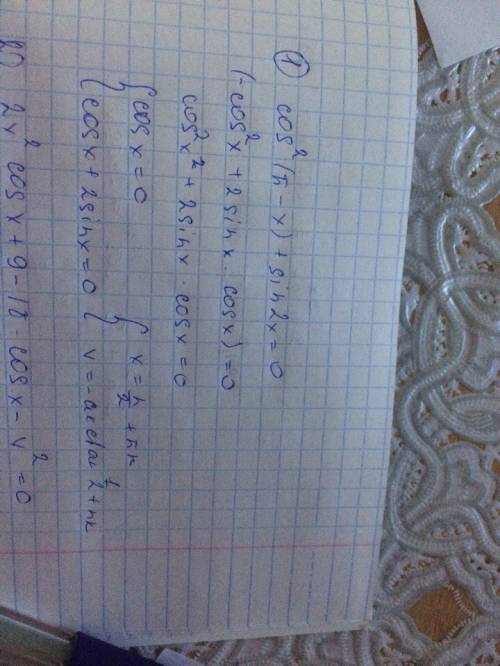 ① cos²(π - x) + sin2x = 0
(-cos²x + 2sinx · cosx) = 0
cos²x² + 2sinx · cosx = 0
{ cosx = 0 { x = π/2 + πn
{ cosx + 2sinx = 0 { v = -arctan 1/2 + πk
2x² cosx + 9 - 18 · cosx - v² = 0